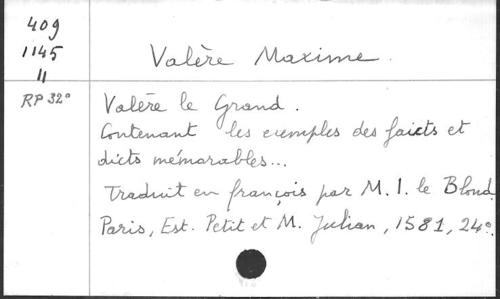 409
1145
11
Valère Maxime.
RP 32°
Valère le Grand.
Contenant les exemples des faicts et
dicts mémorables...
Traduit en françois par M. I. le Blond
Paris, Est. Petit et M. Julian, 1581, 24°.